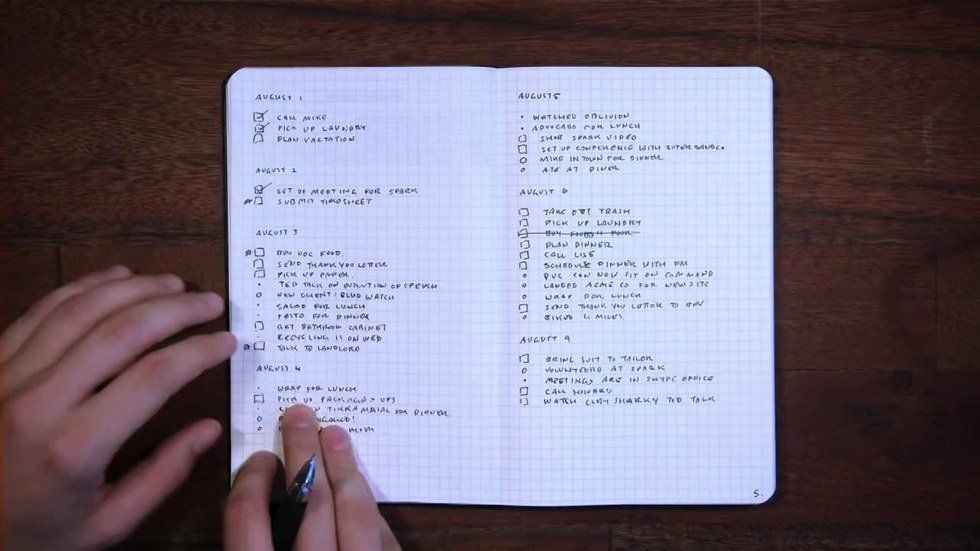 AUGUST 1
CALL MIKE
PICK UP LAUNDRY
PLAN VACATION
AUGUST 2
SET UP MEETING FOR SPARK
SUBMIT TIMESHEET
AUGUST 3
BUY DOG FOOD
SEND THANK YOU LETTER
PICK UP PAPER
TED TALK ON EVOLUTION OF SPEECH
NEW CLIENT: BLUD WATCH
SALAD FOR LUNCH
PESTO FOR DINNER
GET BATHROOM CABINET
RECYCLING IS ON WED
TALK TO LANDLORD
AUGUST 4
WRAP FOR LUNCH
PICK UP PACKAGE > UPS
TIKKA FOR DINNER
AUGUST 5
WATCHED OBLIVION
ADVOCADO FOR LUNCH
SHOOT SPARK VIDEO
SET UP CONFERENCE WITH
MIKE IN TOWN FOR DINNER
ATE AT DINER
AUGUST 6
TAKE OUT TRASH
PICK UP LAUNDRY
BUY
PLAN DINNER
CALL LISE
SCHEDULE DINNER WITH FM
CAN NOW SIT ON COMMAND
LANDED ACME CO FOR NEW SITE
WRAP FOR LUNCH
SEND THANK YOU LETTER TO
BIKED 4 MILES
AUGUST 9
BRING SUIT TO TAILOR
VOLUNTEERED AT SPARK
MEETINGS ARE IN SKYPE OFFICE
CALL
WATCH CLAY SHARKY TED TALK
5.